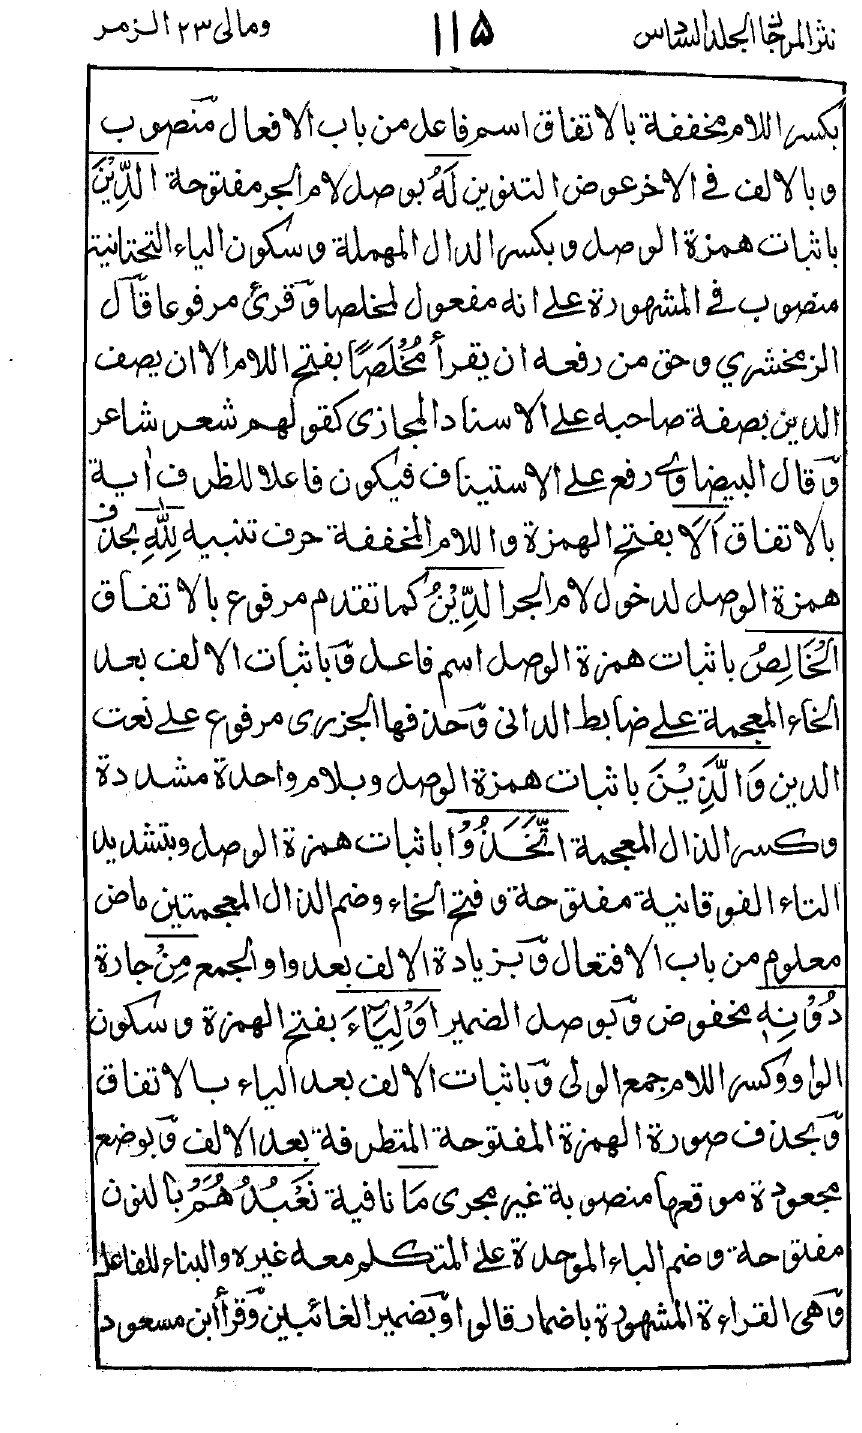 نثر المرجان الجلد السادس ١١٥ ومالى ٢٣ الزمر
بكسر اللام مخففة بالاتفاق اسم فاعل من باب الافعال منصوب
وبالالف في الاخر عوض التنوين لَهُ بوصل لام الجر مفتوحة الدِّيْنَ
باثبات همزة الوصل وبكسر الدال المهملة وسكون الياء التحتانية
منصوب في المشهورة على انه مفعول لمخلصا وقرئ مرفوعا قال
الزمخشري وحق من رفعه ان يقرأ مُخْلَصًا بفتح اللام الا ان يصف
الدين بصفة صاحبه على الاسناد المجازى كقولهم شعر شاعر
وقال البيضاوي رفع على الاستيناف فيكون فاعلا للظرف اية
بالاتفاق اَلَا بفتح الهمزة واللام المخففة حرف تنبيه لِلّٰهِ بحذف
همزة الوصل لدخول لام الجر الدِّيْنُ كما تقدم مرفوع بالاتفاق
الْخَالِصُ باثبات همزة الوصل اسم فاعل وباثبات الالف بعد
الخاء المعجمة على ضابط الدانى وحذفها الجزرى مرفوع على نعت
الدين وَالَّذِيْنَ باثبات همزة الوصل وبلام واحدة مشددة
وكسر الذال المعجمة اتَّخَذُوْا باثبات همزة الوصل وبتشديد
التاء الفوقانية مفتوحة وفتح الخاء وضم الذال المعجمتين ماض
معلوم من باب الافتعال وبزيادة الالف بعد واو الجمع مِنْ جارة
دُوْنِهٖ مخفوض وبوصل الضمير اَوْلِيَآءَ بفتح الهمزة وسكون
الواو وكسر اللام جمع الولى وباثبات الالف بعد الياء بالاتفاق
وبحذف صورة الهمزة المفتوحة المتطرفة بعد الالف وبوضع
مجعودة موقعها منصوبة غير مجرى مَا نافية نَعْبُدُهُمْ بالنون
مفتوحة وضم الباء الموحدة على المتكلم معه غيره والبناء للفاعل
وهى القراءة المشهورة باضمار قالوا وبضمير الغائبين وقرأ ابن مسعود